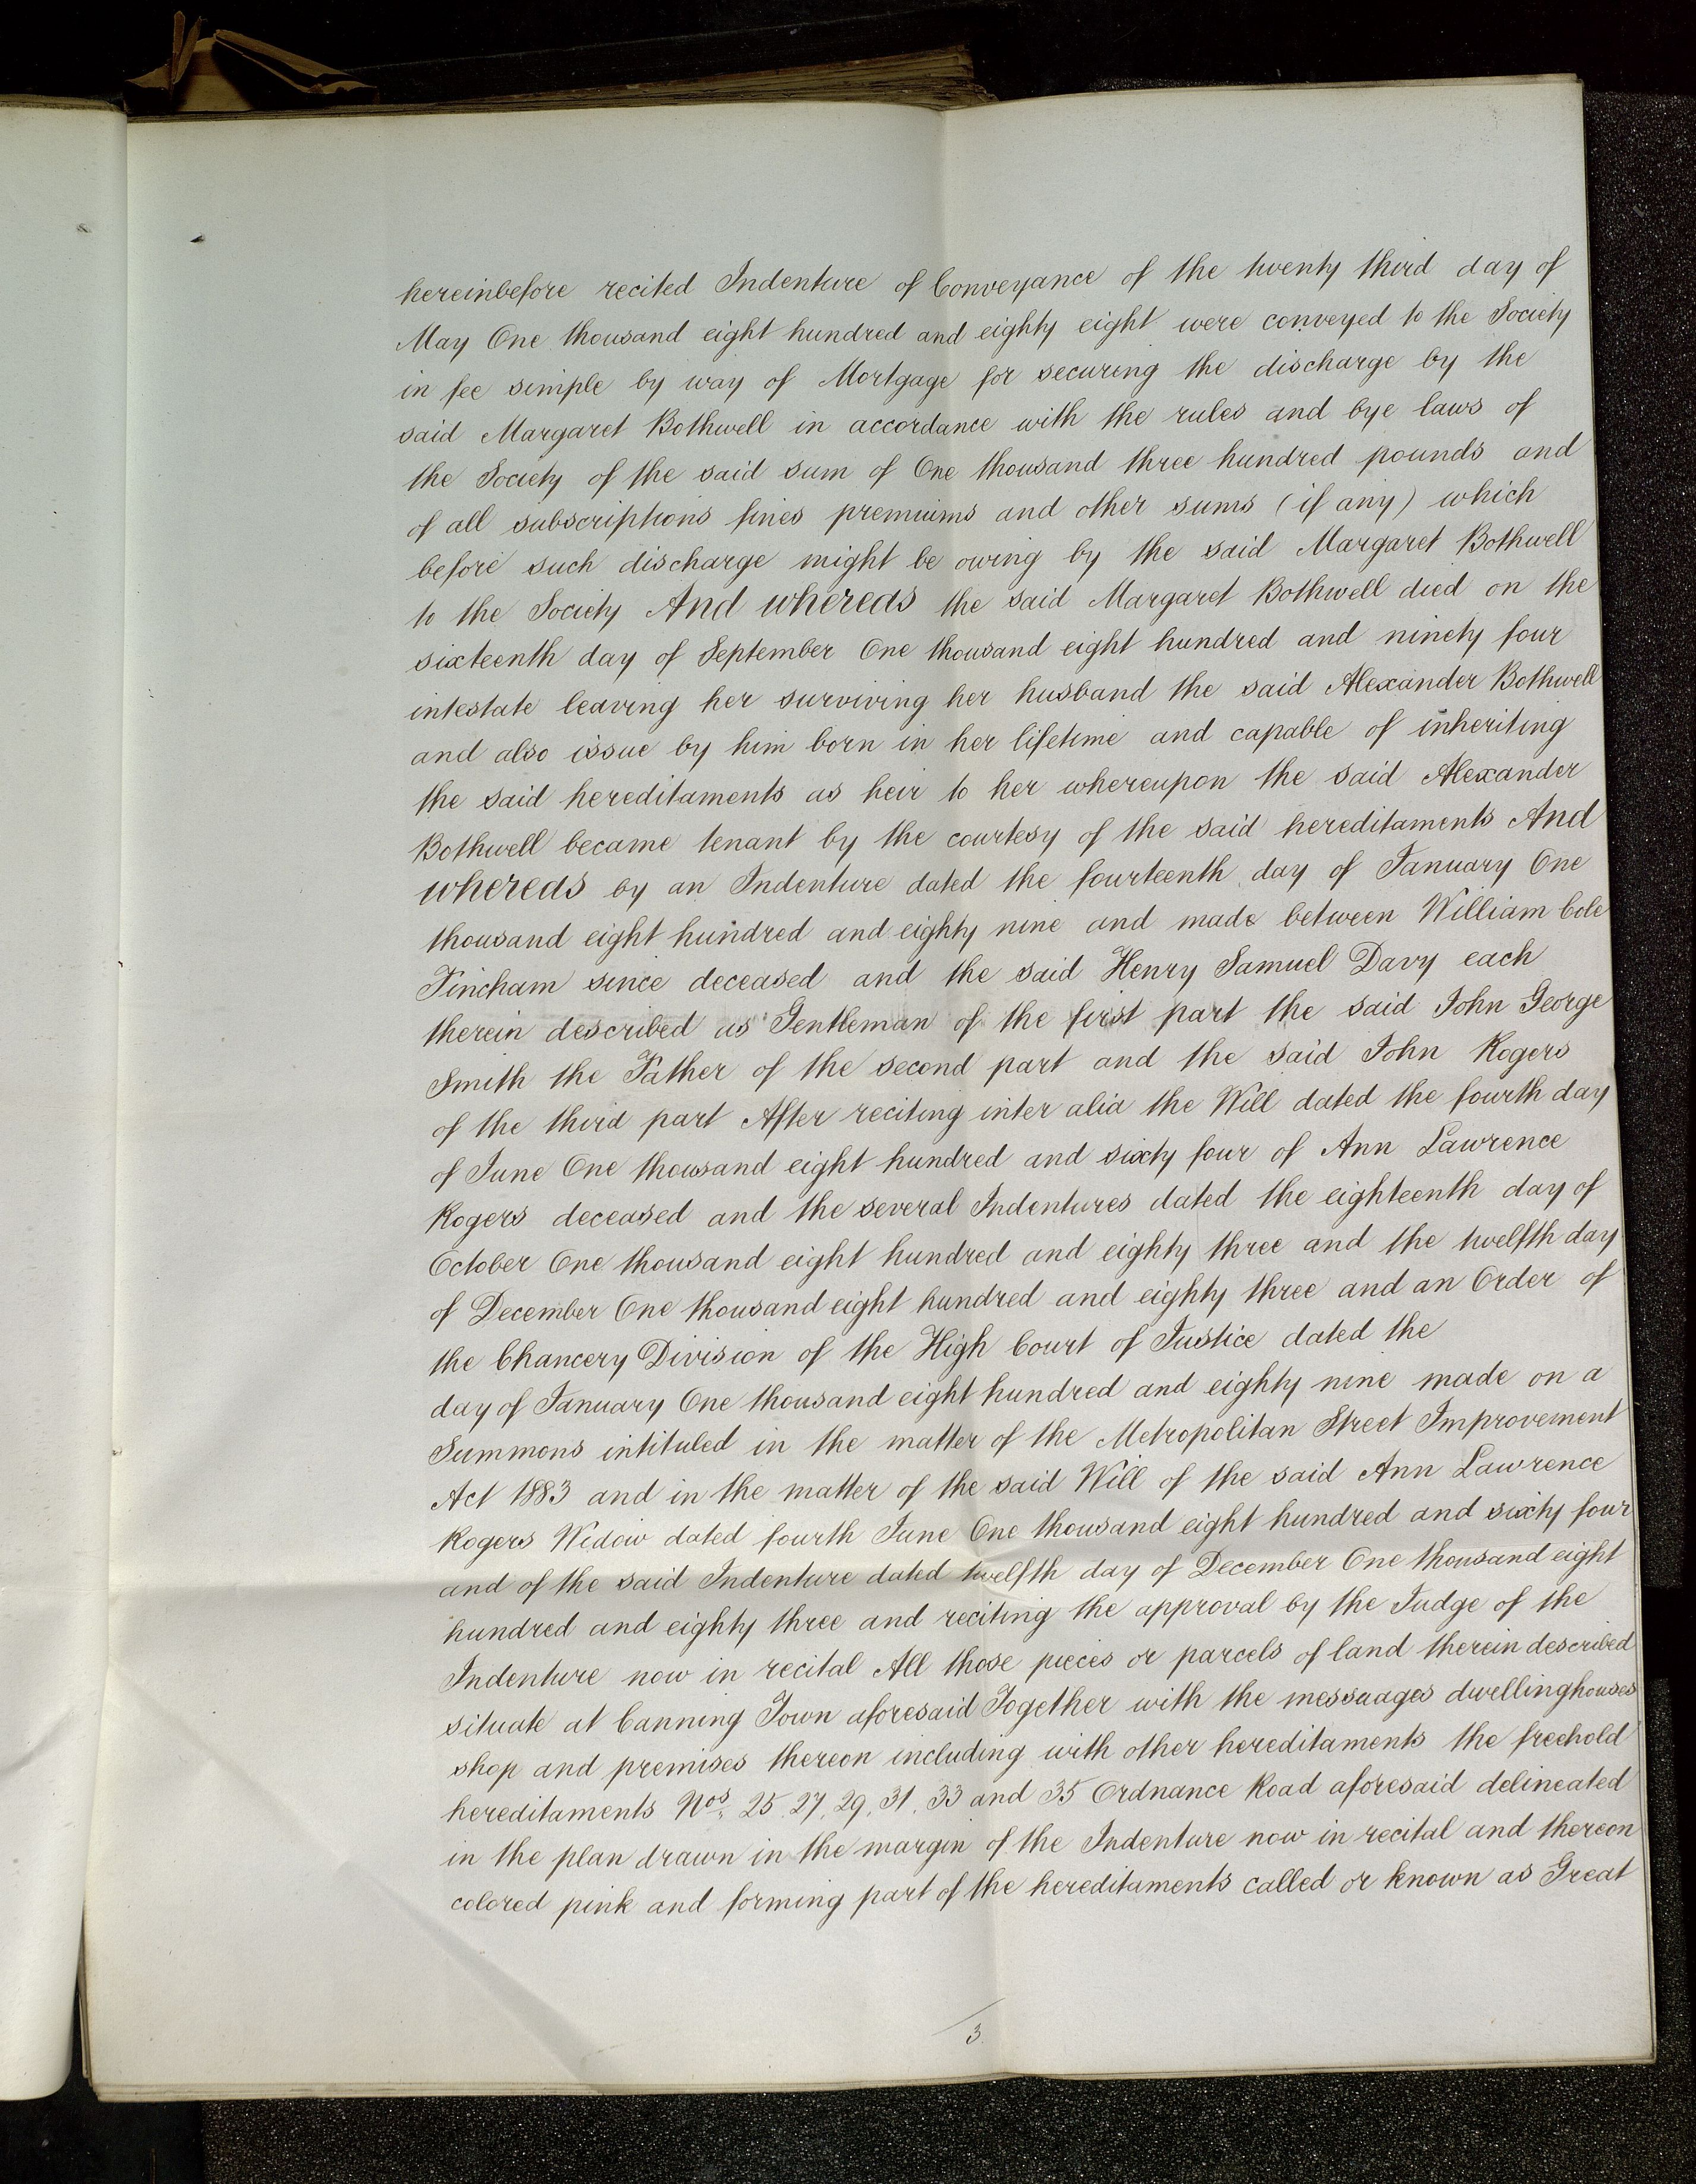 hereinbefore recited Indenture of Conveyance of the twenty third day of
May One thousand eight hundred and eighty eight were conveyed to the Society
in fee simple by way of Mortgage for securing the discharge by the
said Margaret Bothwell in accordance with the rules and bye laws of
the Society of the said sum of One thousand three hundred pounds and
of all subscriptions fines premiums and other sums (if any) which
before such discharge might be owing by the said Margaret Bothwell
to the Society And whereas the said Margaret Bothwell died on the
sixteenth day of September One thousand eight hundred and ninety four
intestate leaving her surviving her husband the said Alexander Bothwell
and also issue by him born in her lifetime and capable of inheriting
the said hereditaments as heir to her whereupon the said Alexander
Bothwell became tenant by the courtesy of the said hereditaments And
whereas by an Indenture dated the fourteenth day of January One
thousand eight hundred and eighty nine and made between William Cole
Fincham since deceased and the said Henry Samuel Davy each
therein described as Gentleman of the first part the said John George
Smith the Father of the second part and the said John Rogers
of the third part After reciting inter alia the Will dated the fourth day
of June One thousand eight hundred and sixty four of Ann Lawrence
Rogers deceased and the several Indentures dated the eighteenth day of
October One thousand eight hundred and eighty three and the twelfth day
of December One thousand eight hundred and eighty three and an Order of
the Chancery Division of the High Court of Justice dated the
day of January One thousand eight hundred and eighty nine made on a
Summons intituled in the matter of the Metropolitan Street Improvement
Act 1883 and in the matter of the said Will of the said Ann Lawrence
Rogers Widow dated fourth June One thousand eight hundred and sixty four
and of the said Indenture dated twelfth day of December One thousand eight
hundred and eighty three and reciting the approval by the Judge of the
Indenture now in recital All those pieces or parcels of land therein described
situate at Canning Town aforesaid Together with the messuages dwellinghouses
shop and premises thereon including with other hereditaments the freehold
hereditaments Nos. 25, 27, 29, 31, 33 and 35 Ordnance Road aforesaid delineated
in the plan drawn in the margin of the Indenture now in recital and thereon
colored pink and forming part of the hereditaments called or known as Great
3